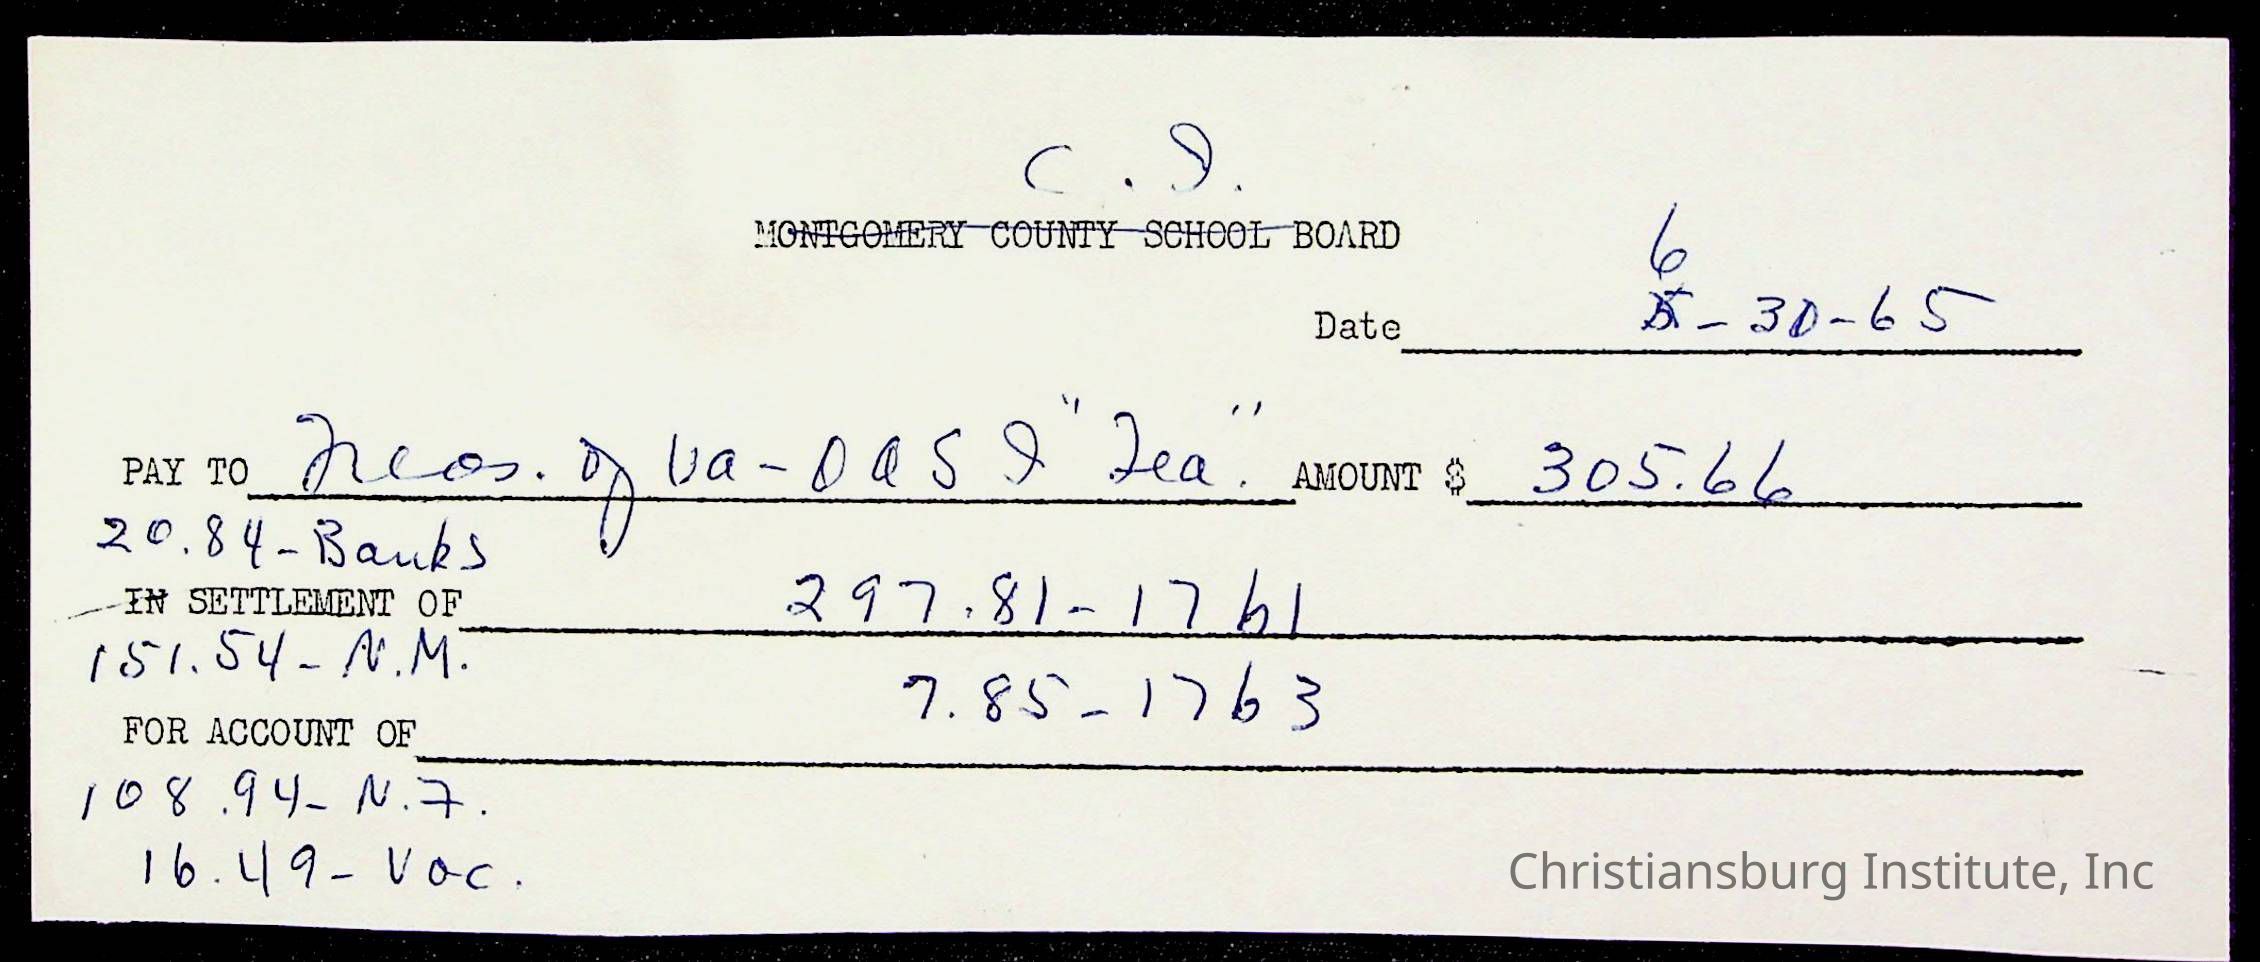 C. I.
MONTGOMERY COUNTY SCHOOL BOARD
6
Date 5-30-65
PAY TO Treas. of Va - OASI "Tea". AMOUNT $ 305.66
20.84 - Banks
IN SETTLEMENT OF 297.81 - 1761
151.54 - N.M.
7.85 - 1763
FOR ACCOUNT OF
108.94 - N.F.
16.49 - Voc.
Christiansburg Institute, Inc